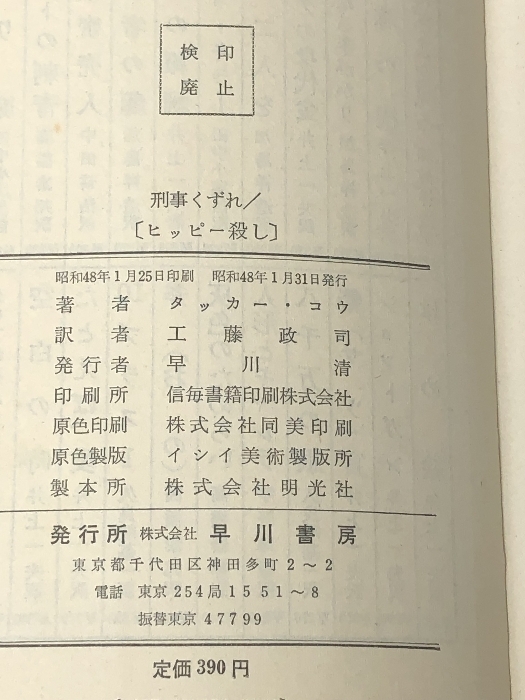 検印
廃止
刑事くずれ/
〔ヒッピー殺し〕
昭和48年1月25日印刷 昭和48年1月31日発行
著者 タッカー・コウ
訳者 工藤政司
発行者 早川清
印刷所 信毎書籍印刷株式会社
原色印刷 株式会社同美印刷
原色製版 イシイ美術製版所
製本所 株式会社明光社
発行所 株式会社 早川書房
東京都千代田区神田多町2～2
電話 東京254局1551～8
振替東京47799
定価390円